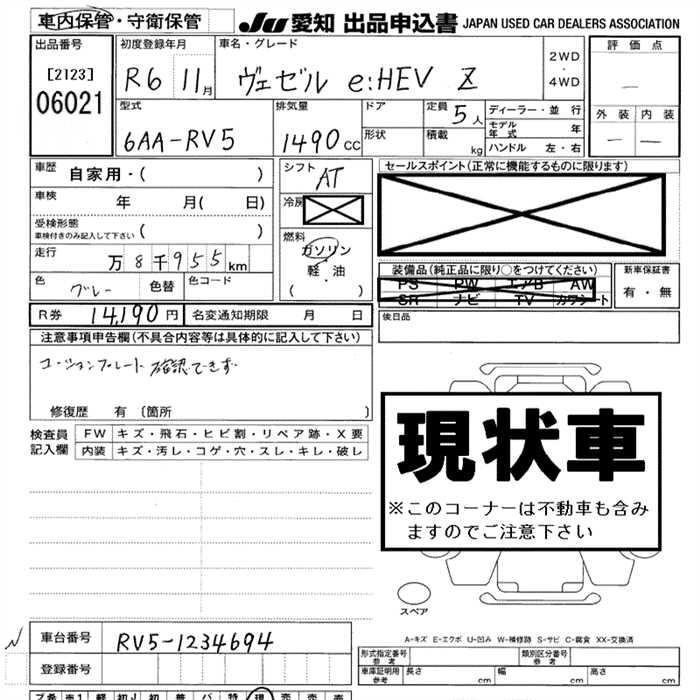 車内保管・守衛保管 JU 愛知 出品申込書 JAPAN USED CAR DEALERS ASSOCIATION
出品番号 初度登録年月 車名・グレード 評価点
[2123] R6 11月 ヴェゼル e:HEV Z 2WD・4WD
06021
型式 排気量 ドア 定員 5人 ディーラー・並行 外装 内装
6AA-RV5 1490cc 形状 積載 kg モデル年式 年
ハンドル 左・右
車歴 自家用・( ) シフト AT セールスポイント(正常に機能するものに限ります)
車検 年 月( 日) 冷房
受検形態
車検付きのみ記入して下さい ( ) 燃料
走行 万8千955km ガソリン 装備品(純正品に限り○をつけてください) 新車保証書
色 グレー 色替 色コード 軽・油 PS PW エアB AW 有・無
( ・ ) SR ナビ TV カワシート
R券 14,190円 名変通知期限 月 日 後日品
注意事項申告欄(不具合内容等は具体的に記入して下さい)
コーションプレート確認できず
修復歴 有〔箇所 〕
検査員記入欄 FW キズ・飛石・ヒビ割・リペア跡・X要
内装 キズ・汚レ・コゲ・穴・スレ・キレ・破レ
現状車
※このコーナーは不動車も含み
ますのでご注意下さい
スペア
A-キズ E-エクボ U-凹み W-補修跡 S-サビ C-腐食 XX-交換済
車台番号 RV5-1234694
登録番号
形式指定番号 参考 類別区分番号 参考
車庫証明用 参考 長さ cm 幅 cm 高さ cm